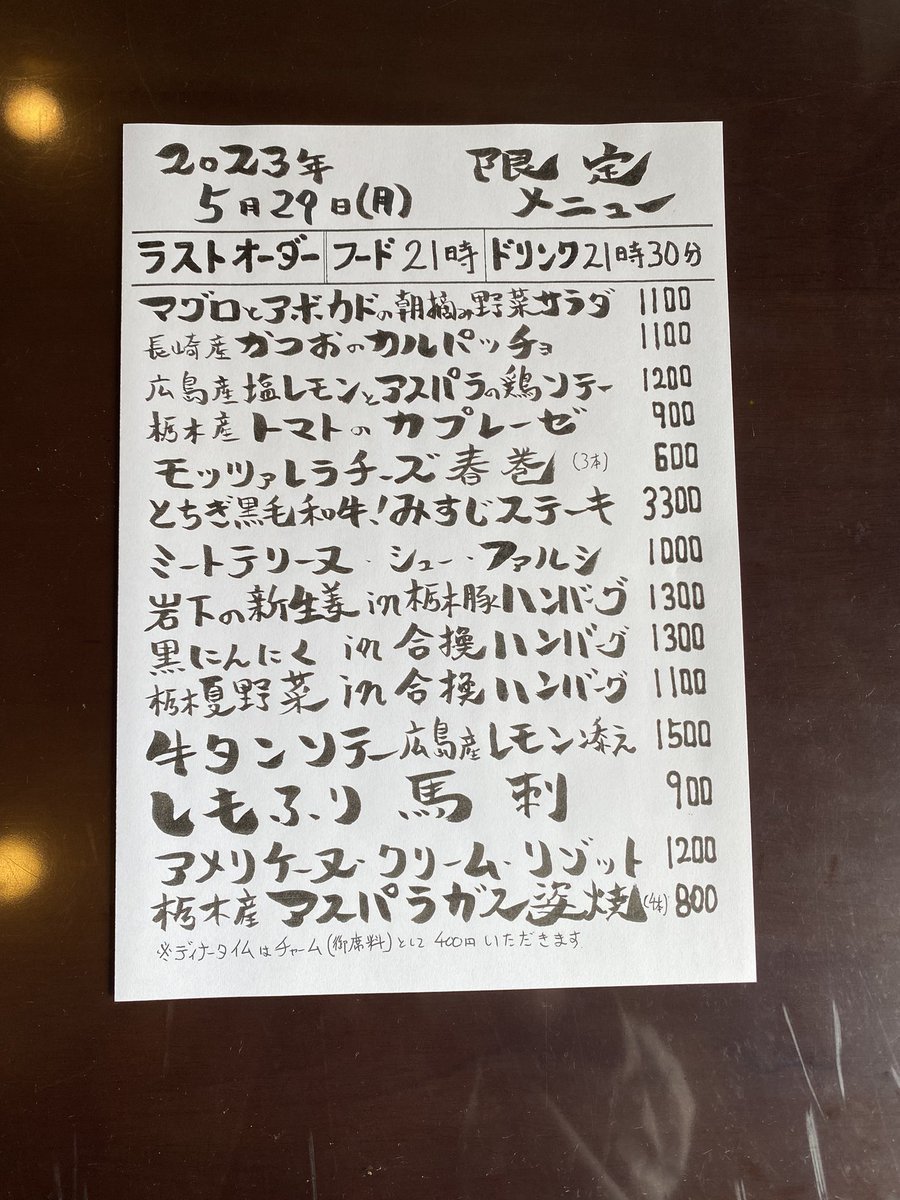 2023年 限定
5月29日(月) メニュー
ラストオーダー フード21時 ドリンク21時30分
マグロとアボカドの朝摘み野菜サラダ 1100
長崎産かつおのカルパッチョ 1100
広島産塩レモンとアスパラの鶏ソテー 1200
栃木産トマトのカプレーゼ 900
モッツァレラチーズ春巻(3本) 600
とちぎ黒毛和牛!みすじステーキ 3300
ミートテリーヌ・シュー・ファルシ 1000
岩下の新生姜in栃木豚ハンバーグ 1300
黒にんにくin合挽ハンバーグ 1300
栃木夏野菜in合挽ハンバーグ 1100
牛タンソテー広島産レモン添え 1500
しもふり馬刺 900
アメリケーヌ・クリーム・リゾット 1200
栃木産アスパラガス姿焼(4本) 800
※ディナータイムはチャーム(御席料)として400円いただきます